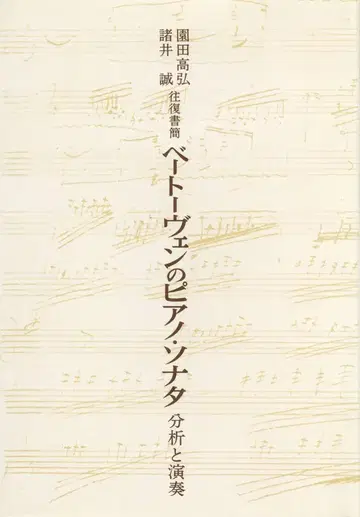 園田高弘
諸井 誠
往復書簡
ベートーヴェンのピアノ・ソナタ
分析と演奏